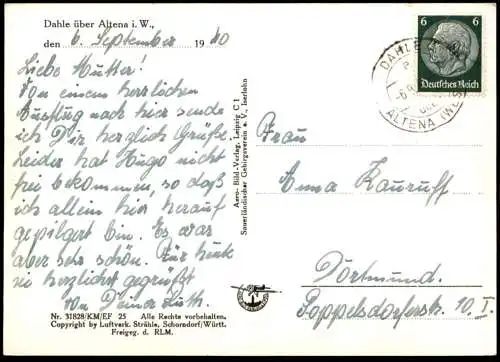 Dahle über Altena i. W.,
den 6. September 1940
Liebe Mutter!
Von einem herrlichen
Ausflug nach hier sende
ich Dir herzlich Grüße.
Leider hat Hugo nicht
frei bekommen, so daß
ich allein hier herauf
gepilgert bin. Es war
aber sehr schön. Für heute
sei herzlichst gegrüßt
von Deiner Ruth.
Nr. 31828/KM/EF 25 Alle Rechte vorbehalten.
Copyright by Luftverk. Strähle, Schorndorf/Württ.
Freigeg. d. RLM.
Aero-Bild-Verlag, Leipzig C 1
Sauerländischer Gebirgsverein e. V., Iserlohn
6 6
Deutsches Reich
DAHLE
ALTENA (WESTF)
Frau
Anna Kauruff
Dortmund.
Poppelsdorferstr. 10. I.